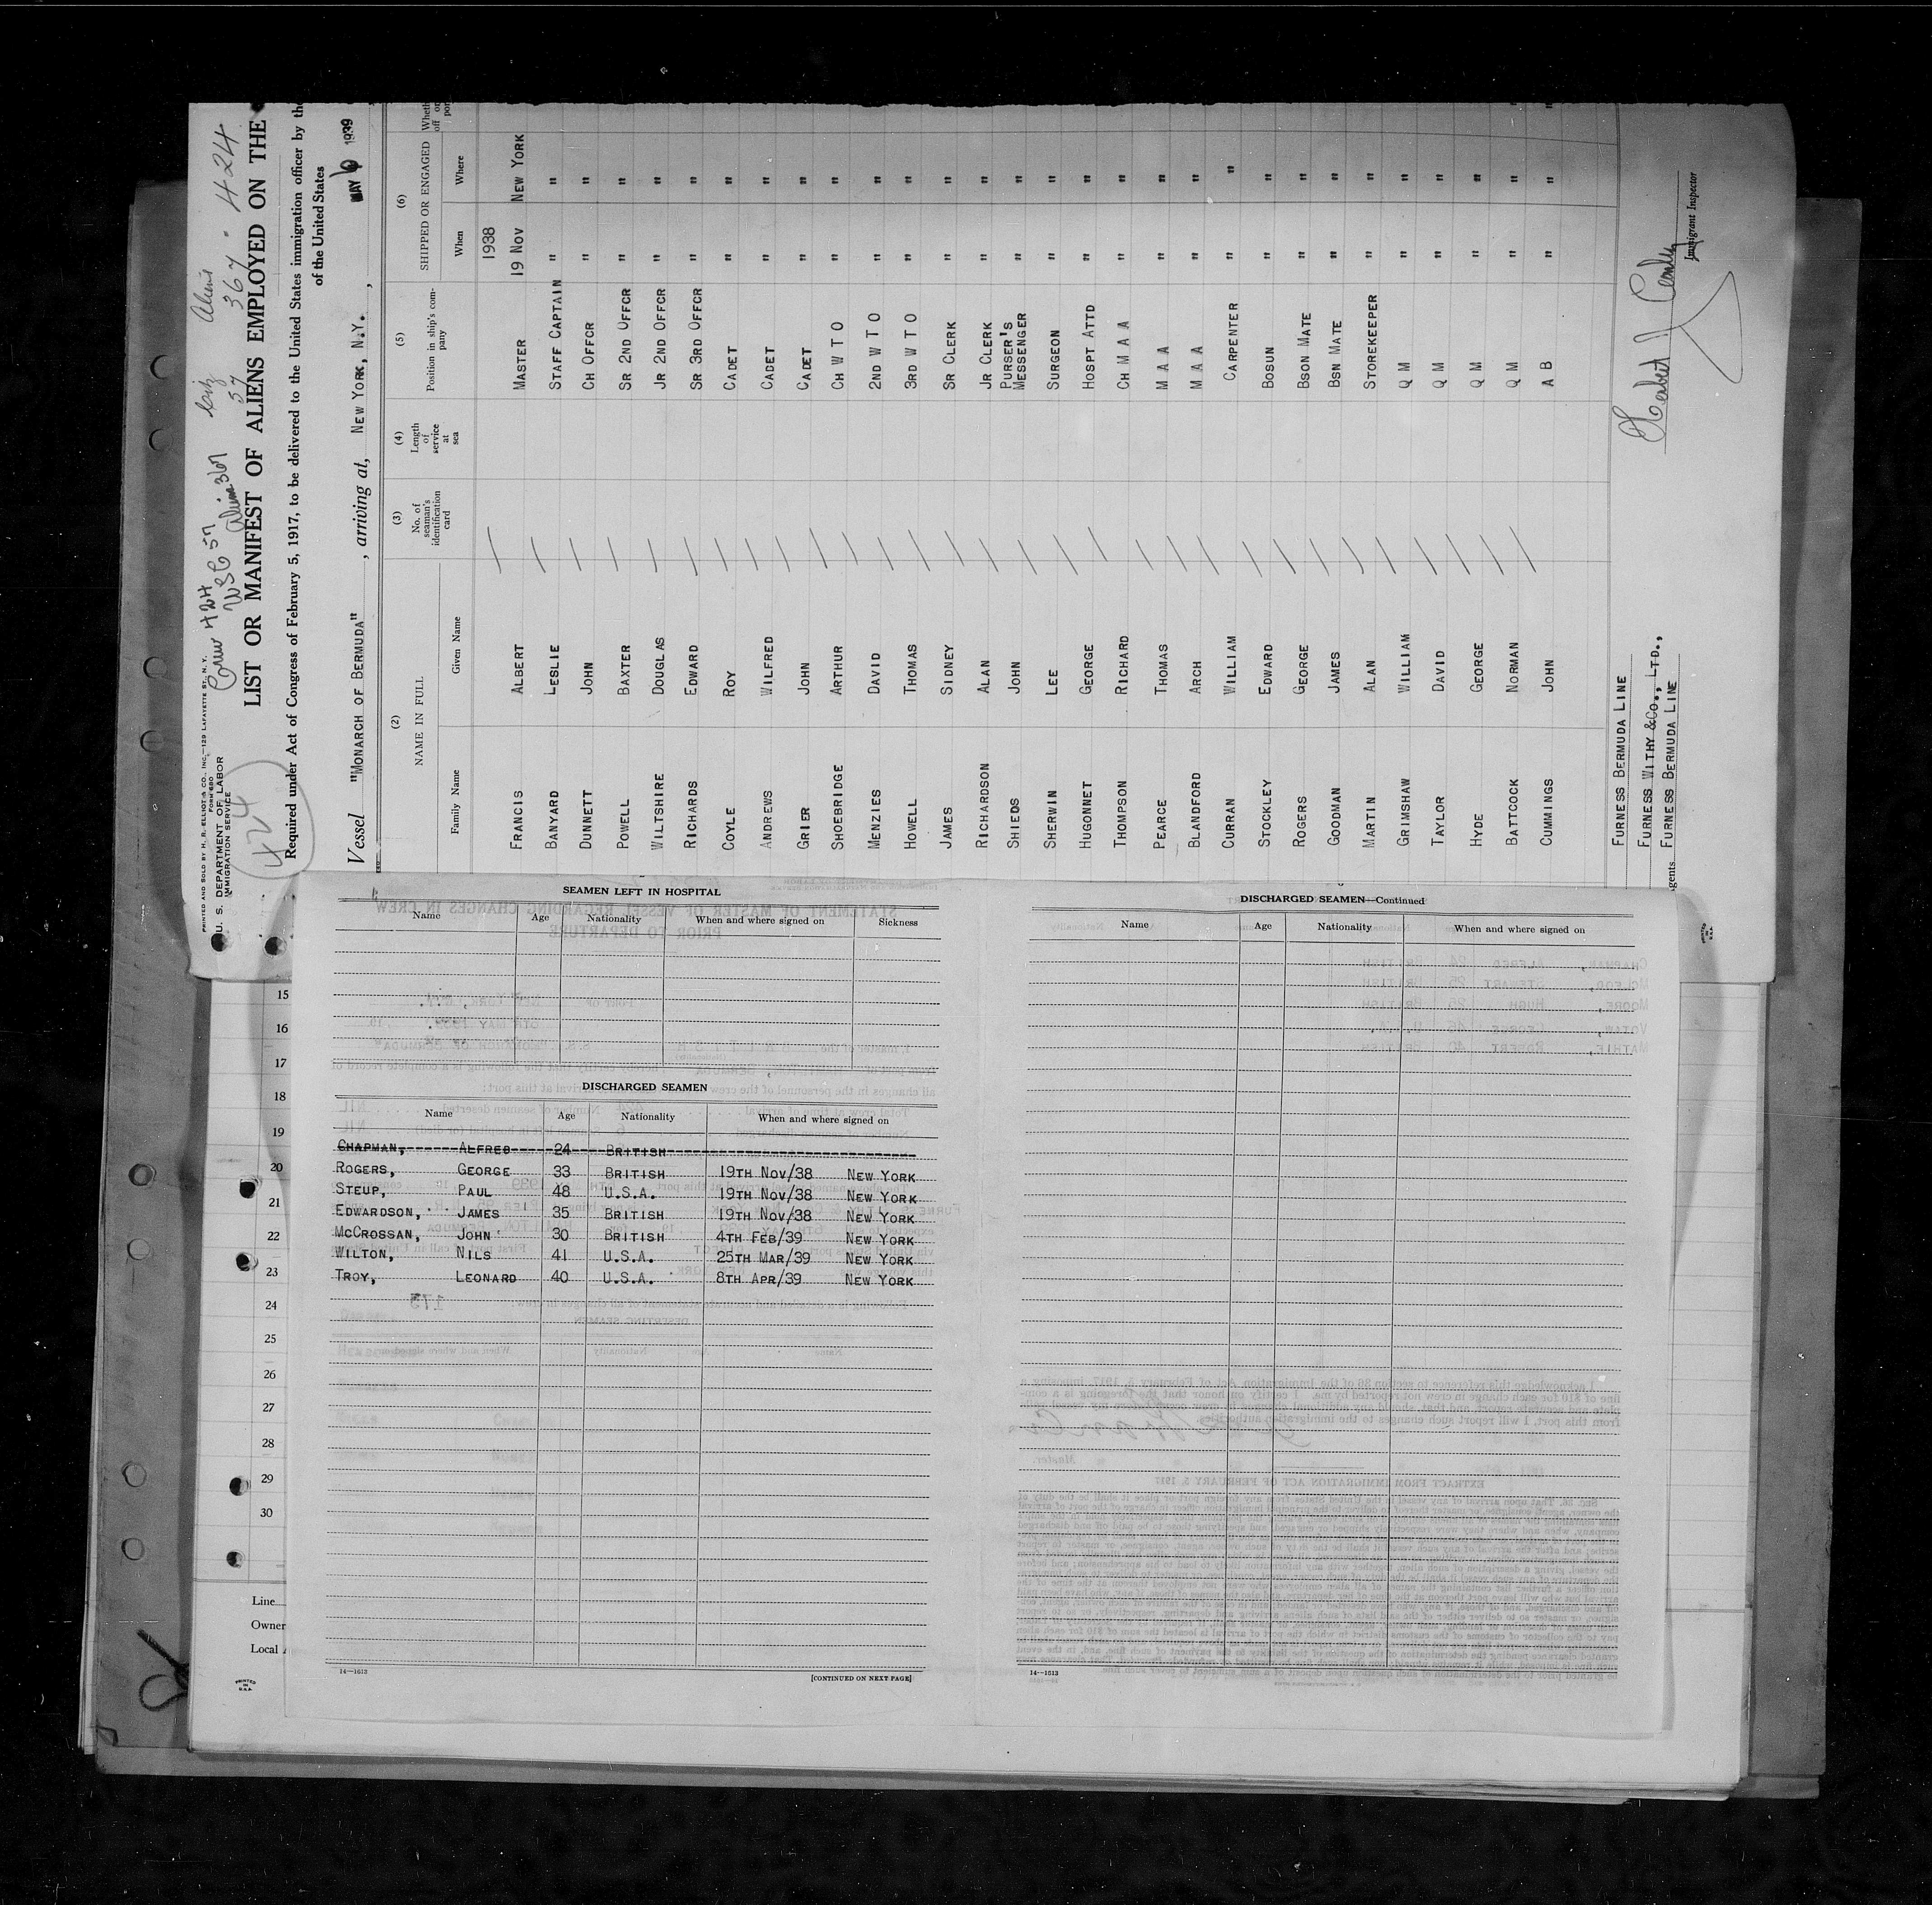 PRINTED AND SOLD BY H. R. ELLIOT & CO., INC.—129 LAFAYETTE ST., N. Y.
FORM 680
U. S. DEPARTMENT OF LABOR
IMMIGRATION SERVICE
424
Crew 424
USC 57
Alien 367
Aliens
57 367 - 424
LIST OR MANIFEST OF ALIENS EMPLOYED ON THE
Required under Act of Congress of February 5, 1917, to be delivered to the United States immigration officer by the
of the United States
Vessel "MONARCH OF BERMUDA", arriving at, NEW YORK, N.Y., MAY 6 1939,
(2) (3) (4) (5) (6)
NAME IN FULL No. of seaman's identification card Length of service at sea Position in ship's company SHIPPED OR ENGAGED
Family Name Given Name When Where
1938
FRANCIS ALBERT MASTER 19 NOV NEW YORK
BANYARD LESLIE STAFF CAPTAIN " "
DUNNETT JOHN CH OFFCR " "
POWELL BAXTER SR 2ND OFFCR " "
WILTSHIRE DOUGLAS JR 2ND OFFCR " "
RICHARDS EDWARD SR 3RD OFFCR " "
COYLE ROY CADET " "
ANDREWS WILFRED CADET " "
GRIER JOHN CADET " "
SHOEBRIDGE ARTHUR CH W T O " "
MENZIES DAVID 2ND W T O " "
HOWELL THOMAS 3RD W T O " "
JAMES SIDNEY SR CLERK " "
RICHARDSON ALAN JR CLERK " "
SHIEDS JOHN PURSER'S MESSENGER " "
SHERWIN LEE SURGEON " "
HUGONNET GEORGE HOSPT ATTD " "
THOMPSON RICHARD CH M A A " "
PEARCE THOMAS M A A " "
BLANDFORD ARCH M A A " "
CURRAN WILLIAM CARPENTER " "
STOCKLEY EDWARD BOSUN " "
ROGERS GEORGE BSON MATE " "
GOODMAN JAMES BSN MATE " "
MARTIN ALAN STOREKEEPER " "
GRIMSHAW WILLIAM Q M " "
TAYLOR DAVID Q M " "
HYDE GEORGE Q M " "
BATTCOCK NORMAN Q M " "
CUMMINGS JOHN A B " "
FURNESS BERMUDA LINE
FURNESS WITHY & CO., LTD.,
gents FURNESS BERMUDA LINE
Immigrant Inspector
SEAMEN LEFT IN HOSPITAL
Name Age Nationality When and where signed on Sickness
DISCHARGED SEAMEN
Name Age Nationality When and where signed on
CHAPMAN, ALFRED 24 BRITISH
ROGERS, GEORGE 33 BRITISH 19TH NOV/38 NEW YORK
STEUP, PAUL 48 U.S.A. 19TH NOV/38 NEW YORK
EDWARDSON, JAMES 35 BRITISH 19TH NOV/38 NEW YORK
MCCROSSAN, JOHN 30 BRITISH 4TH FEB/39 NEW YORK
WILTON, NILS 41 U.S.A. 25TH MAR/39 NEW YORK
TROY, LEONARD 40 U.S.A. 8TH APR/39 NEW YORK
14—1613
[CONTINUED ON NEXT PAGE]
DISCHARGED SEAMEN—Continued
Name Age Nationality When and where signed on
14—1613
15
16
17
18
19
20
21
22
23
24
25
26
27
28
29
30
Line
Owner
Local
PRINTED IN U.S.A.